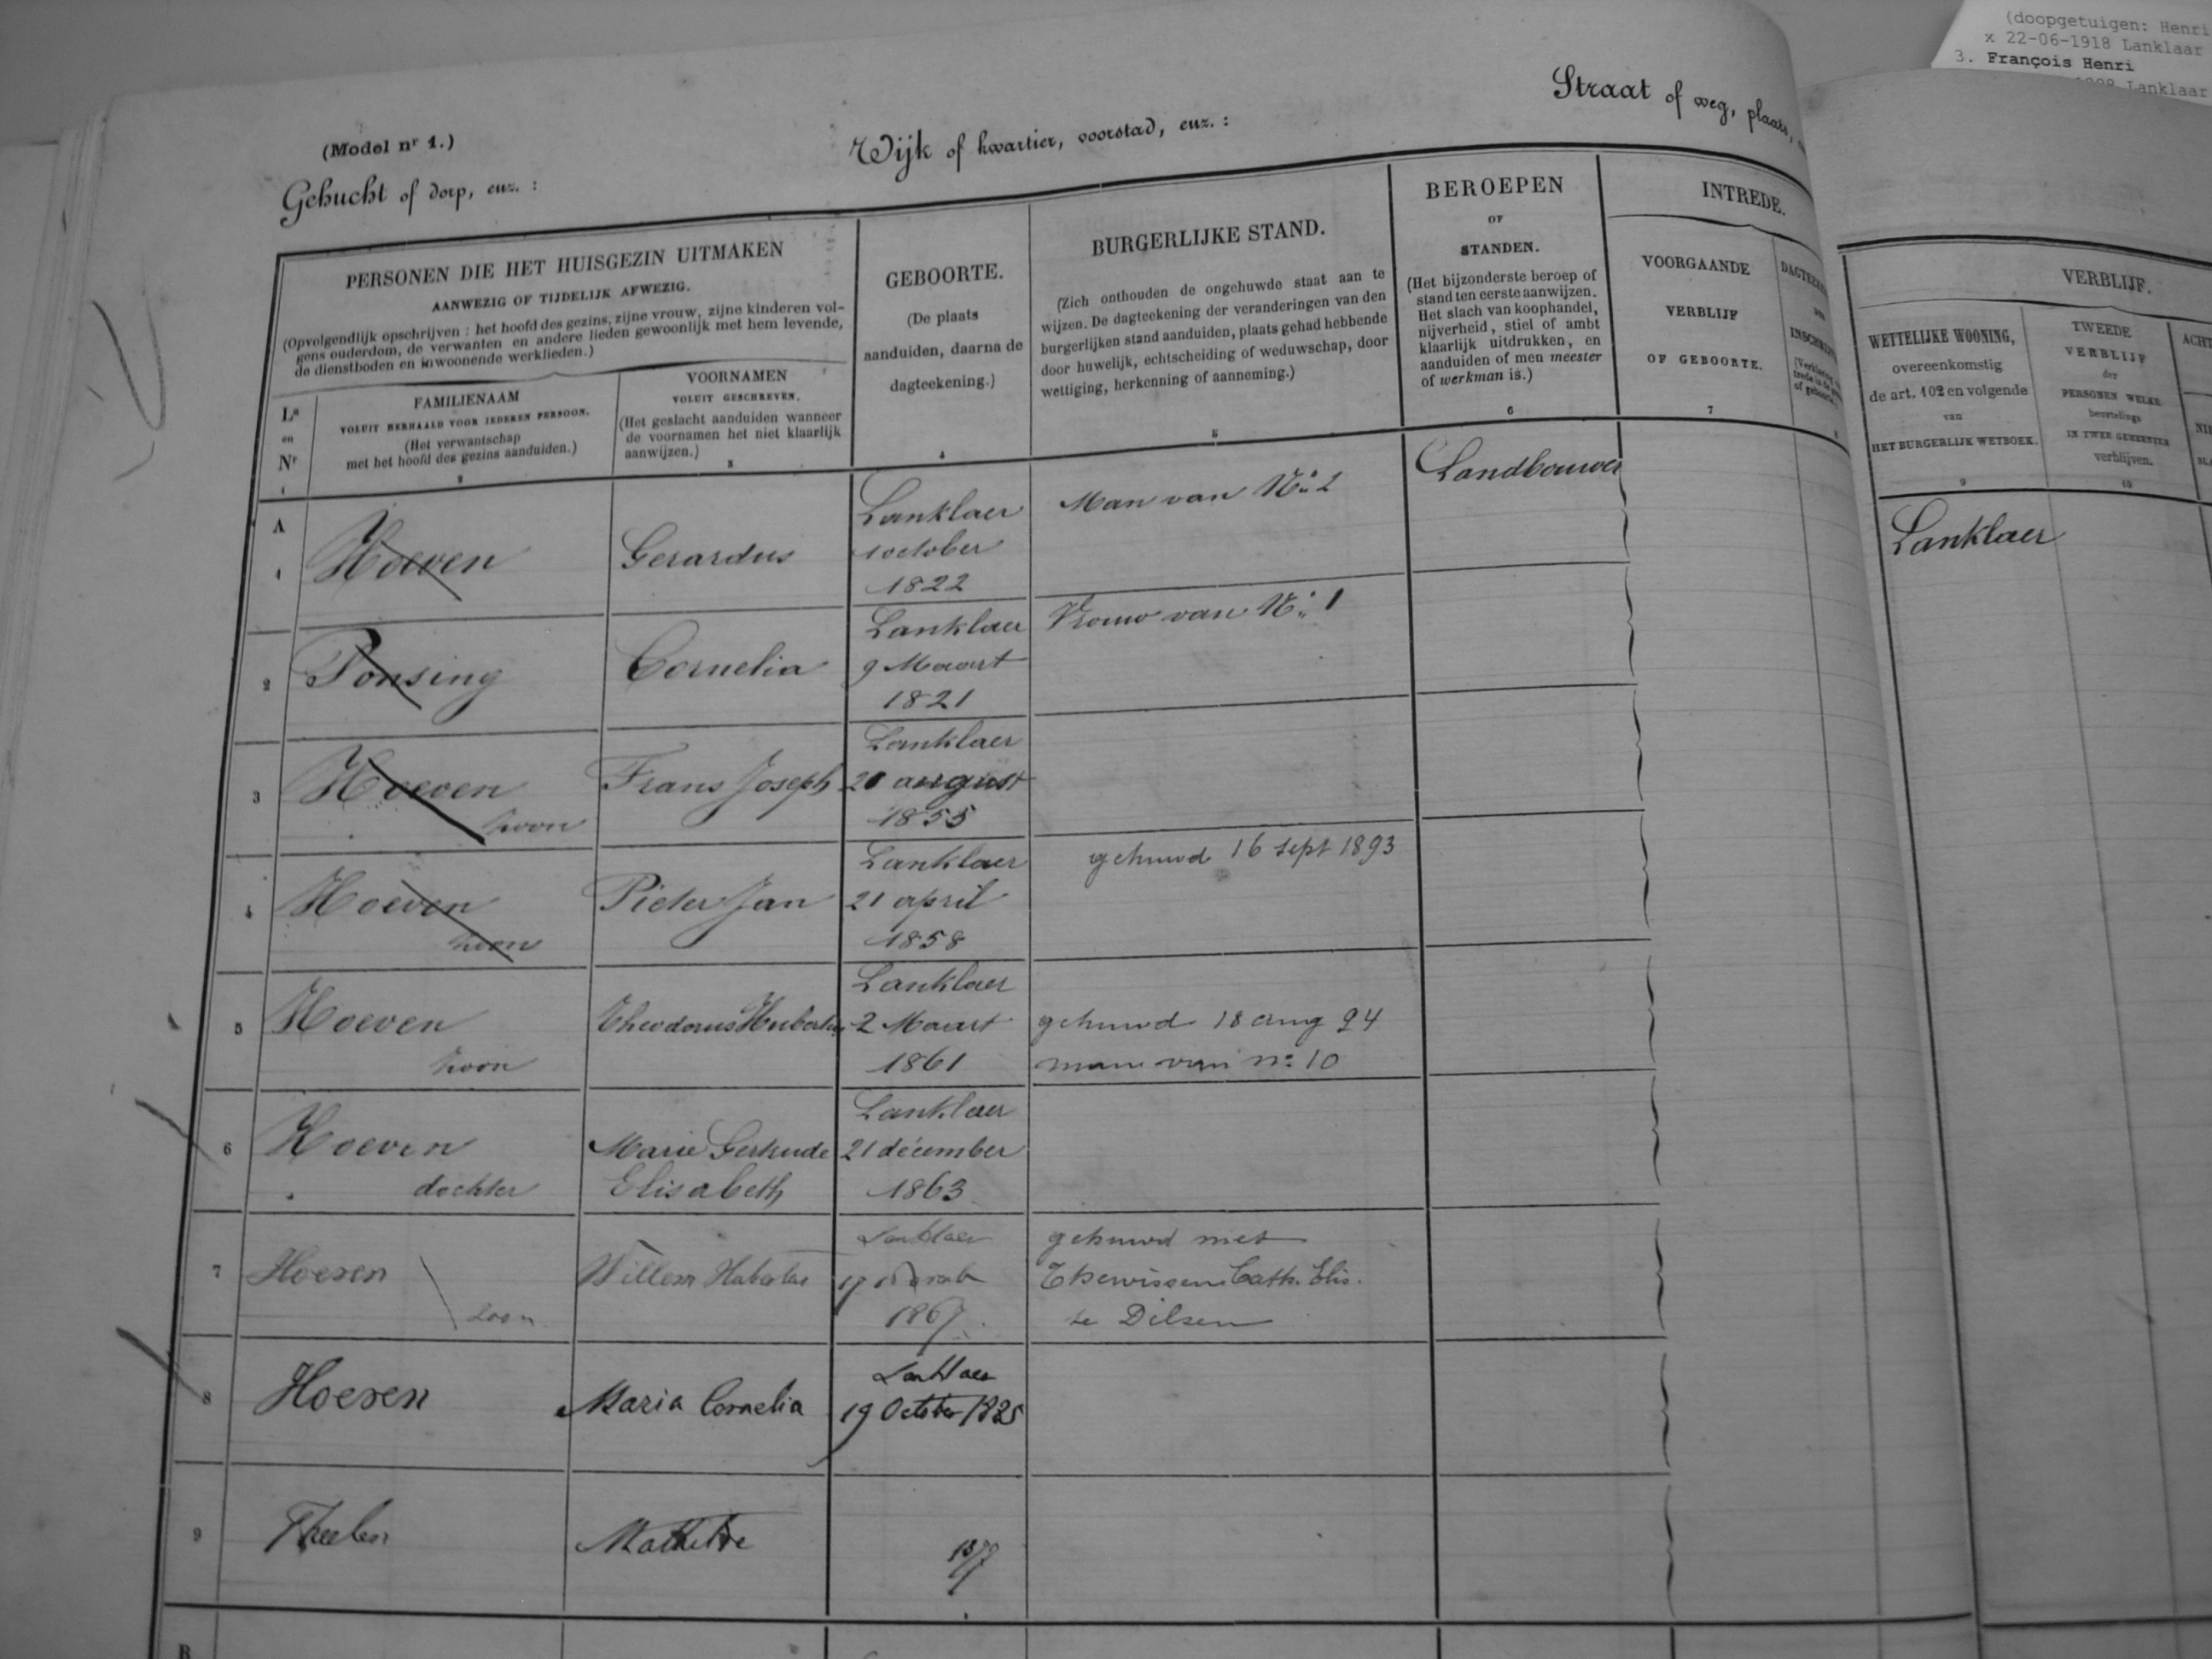 (doopgetuigen: Henri
x 22-06-1918 Lanklaar
3. François Henri
Lanklaar
(Model nr 1.)
Gehucht of dorp, enz. :
Wijk of kwartier, voorstad, enz. :
Straat of weg, plaats,
PERSONEN DIE HET HUISGEZIN UITMAKEN
AANWEZIG OF TIJDELIJK AFWEZIG.
(Opvolgendlijk opschrijven : het hoofd des gezins, zijne vrouw, zijne kinderen vol-
gens ouderdom, de verwanten en andere lieden gewoonlijk met hem levende,
de dienstboden en inwoonende werklieden.)
Ls
en
Nr
1
FAMILIENAAM
VOLUIT HERHAALD VOOR IEDEREN PERSOON.
(Het verwantschap
met het hoofd des gezins aanduiden.)
2
VOORNAMEN
VOLUIT GESCHREVEN.
(Het geslacht aanduiden wanneer
de voornamen het niet klaarlijk
aanwijzen.)
3
GEBOORTE.
(De plaats
aanduiden, daarna de
dagteekening.)
4
BURGERLIJKE STAND.
(Zich onthouden de ongehuwde staat aan te
wijzen. De dagteekening der veranderingen van den
burgerlijken stand aanduiden, plaats gehad hebbende
door huwelijk, echtscheiding of weduwschap, door
wettiging, herkenning of aanneming.)
5
BEROEPEN
OF
STANDEN.
(Het bijzonderste beroep of
stand ten eerste aanwijzen.
Het slach van koophandel,
nijverheid, stiel of ambt
klaarlijk uitdrukken, en
aanduiden of men meester
of werkman is.)
6
INTREDE.
VOORGAANDE
VERBLIJF
OF GEBOORTE.
7
VERBLIJF.
WETTELIJKE WOONING,
overeenkomstig
de art. 102 en volgende
van
HET BURGERLIJK WETBOEK.
9
TWEEDE
VERBLIJF
der
PERSONEN WELKE
beurtelings
IN TWEE GEMEENTEN
verblijven.
10
A
1
Hoeven
Gerardus
Lanklaer
1 october
1822
Man van No 2
Landbouwer
Lanklaer
2
Ponsing
Cornelia
Lanklaer
9 Maart
1821
Vrouw van No 1
3
Hoeven
zoon
Frans Joseph
Lanklaer
20 august
1855
4
Hoeven
zoon
Pieter Jan
Lanklaer
21 april
1858
gehuwd 16 sept 1893
5
Hoeven
zoon
Theodorus Hubertus
Lanklaer
2 Maart
1861
gehuwd 18 aug 94
man van no 10
6
Hoeven
dochter
Marie Gertrude
Elisabeth
Lanklaer
21 décember
1863
7
Hoeven
zoon
Willem Hubertus
Lanklaer
17
1867
gehuwd met
Cath. Elis.
te Dilsen
8
Hoeven
Maria Cornelia
Lanklaer
19 October
9
Theelen
Mathilde
B